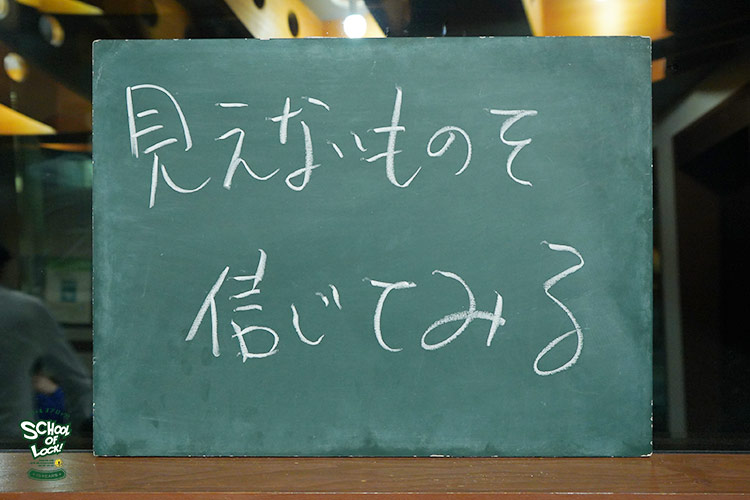 見えないものを
信じてみる
SCHOOL
OF
LOCK!